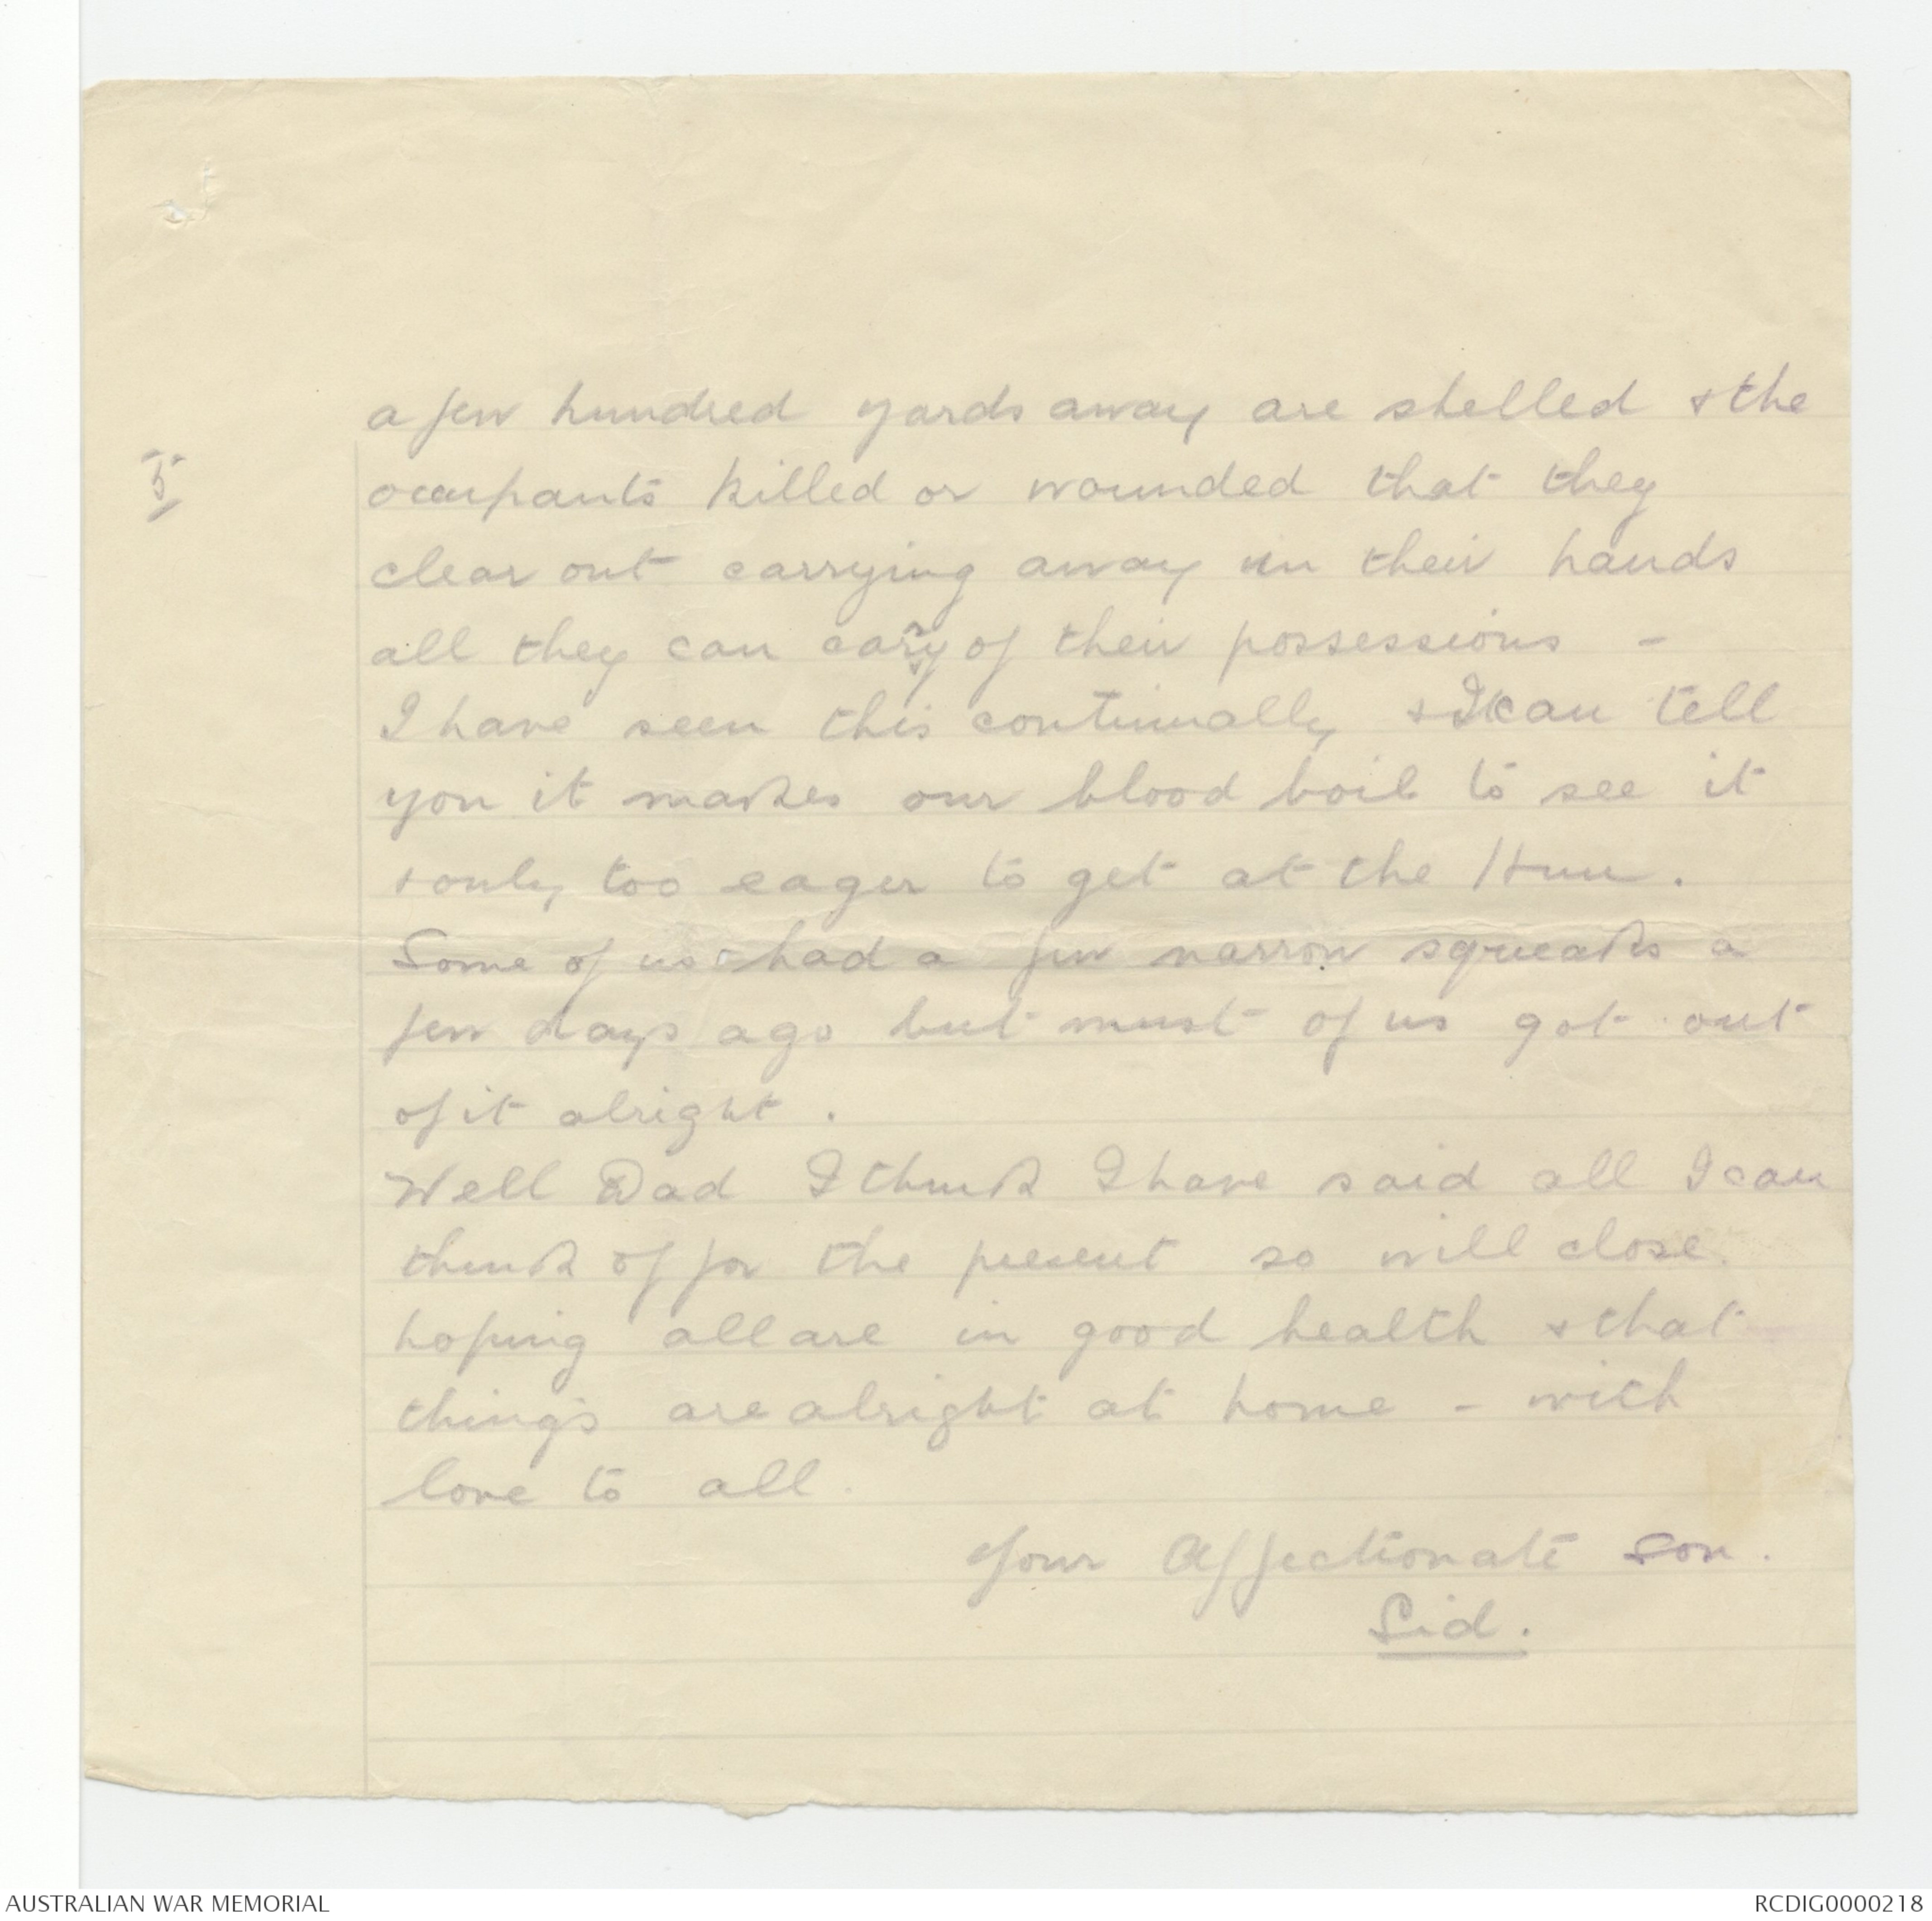 5
a few hundred yards away are shelled & the
occupants killed or wounded that they
clear out carrying away in their hands
all they can carry of their possessions -
I have seen this continually & I can tell
you it makes our blood boil to see it
& only too eager to get at the Hun.
Some of us had a few narrow squeaks a
few days ago but must of us got out
of it alright.
Well Dad I think I have said all I can
think of for the present so will close.
hoping all are in good health & that
things are alright at home - with
love to all.
Your Affectionate Son.
Sid.
AUSTRALIAN WAR MEMORIAL
RCDIG0000218